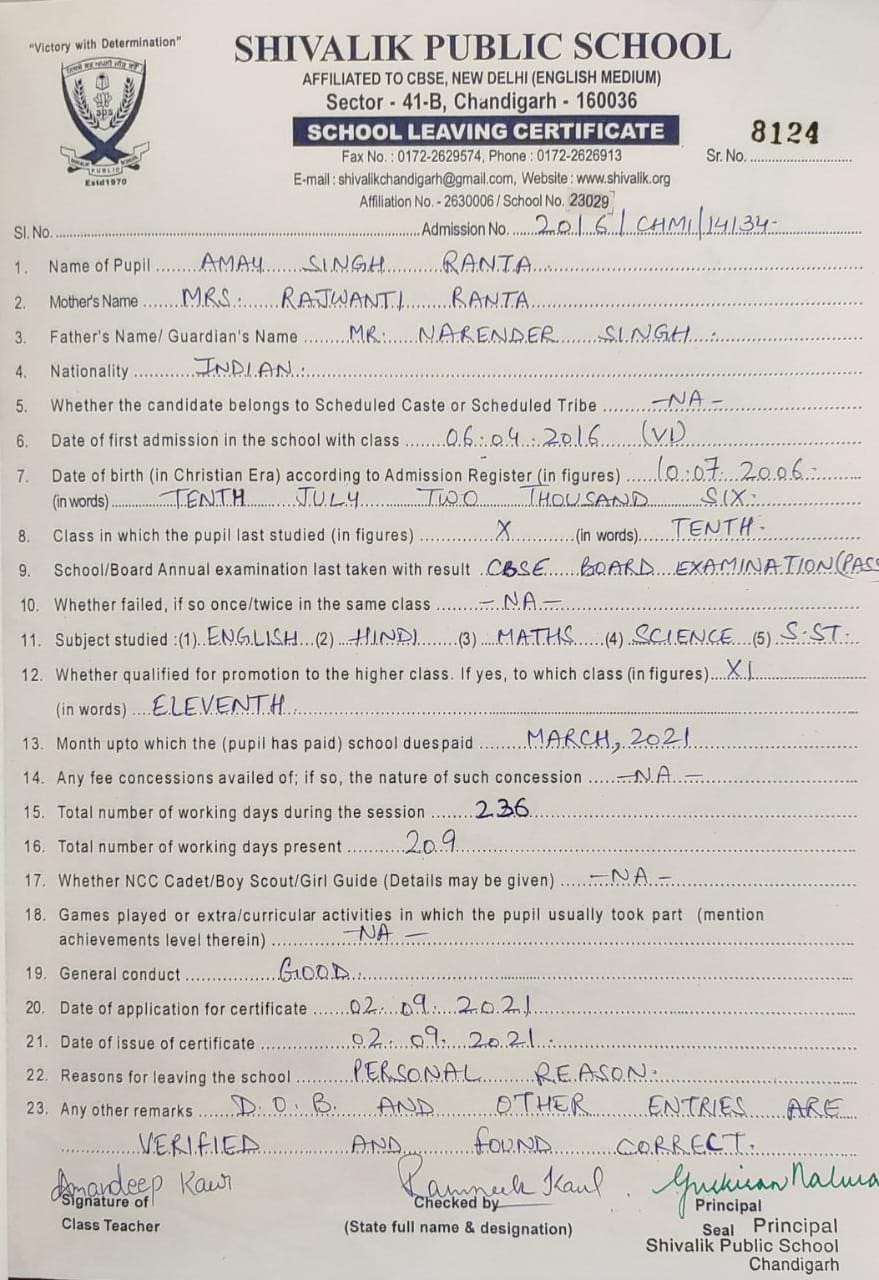 "Victory with Determination"
SHIVALIK PUBLIC SCHOOL
AFFILIATED TO CBSE, NEW DELHI (ENGLISH MEDIUM)
Sector - 41-B, Chandigarh - 160036
SCHOOL LEAVING CERTIFICATE
Fax No. : 0172-2629574, Phone : 0172-2626913
Sr. No. 8124
E-mail : shivalikchandigarh@gmail.com, Website : www.shivalik.org
Affiliation No. - 2630006 / School No. 23029
sps
SHIVALIK PUBLIC SCHOOL
Estd1970
Sl. No. Admission No. 2016/CHMI/14134-
1. Name of Pupil AMAY SINGH RANTA.
2. Mother's Name MRS. RAJWANTI RANTA
3. Father's Name/ Guardian's Name MR. NARENDER SINGH.
4. Nationality INDIAN.
5. Whether the candidate belongs to Scheduled Caste or Scheduled Tribe -NA-
6. Date of first admission in the school with class 06.04.2016 (VI)
7. Date of birth (in Christian Era) according to Admission Register (in figures) 10.07.2006.
(in words) TENTH JULY TWO THOUSAND SIX.
8. Class in which the pupil last studied (in figures) X (in words) TENTH.
9. School/Board Annual examination last taken with result CBSE BOARD EXAMINATION (PASS
10. Whether failed, if so once/twice in the same class -NA-
11. Subject studied :(1) ENGLISH (2) HINDI (3) MATHS (4) SCIENCE (5) S.ST.
12. Whether qualified for promotion to the higher class. If yes, to which class (in figures) XI
(in words) ELEVENTH
13. Month upto which the (pupil has paid) school duespaid MARCH, 2021
14. Any fee concessions availed of; if so, the nature of such concession -NA-
15. Total number of working days during the session 236
16. Total number of working days present 209
17. Whether NCC Cadet/Boy Scout/Girl Guide (Details may be given) -NA-
18. Games played or extra/curricular activities in which the pupil usually took part (mention
achievements level therein) -NA-
19. General conduct GOOD.
20. Date of application for certificate 02.09.2021
21. Date of issue of certificate 02.09.2021.
22. Reasons for leaving the school PERSONAL REASON.
23. Any other remarks D.O.B. AND OTHER ENTRIES ARE
VERIFIED AND FOUND CORRECT.
Amandeep Kaur Ramneek Kaul
Signature of Checked by Principal
Class Teacher (State full name & designation) Seal Principal
Shivalik Public School
Chandigarh